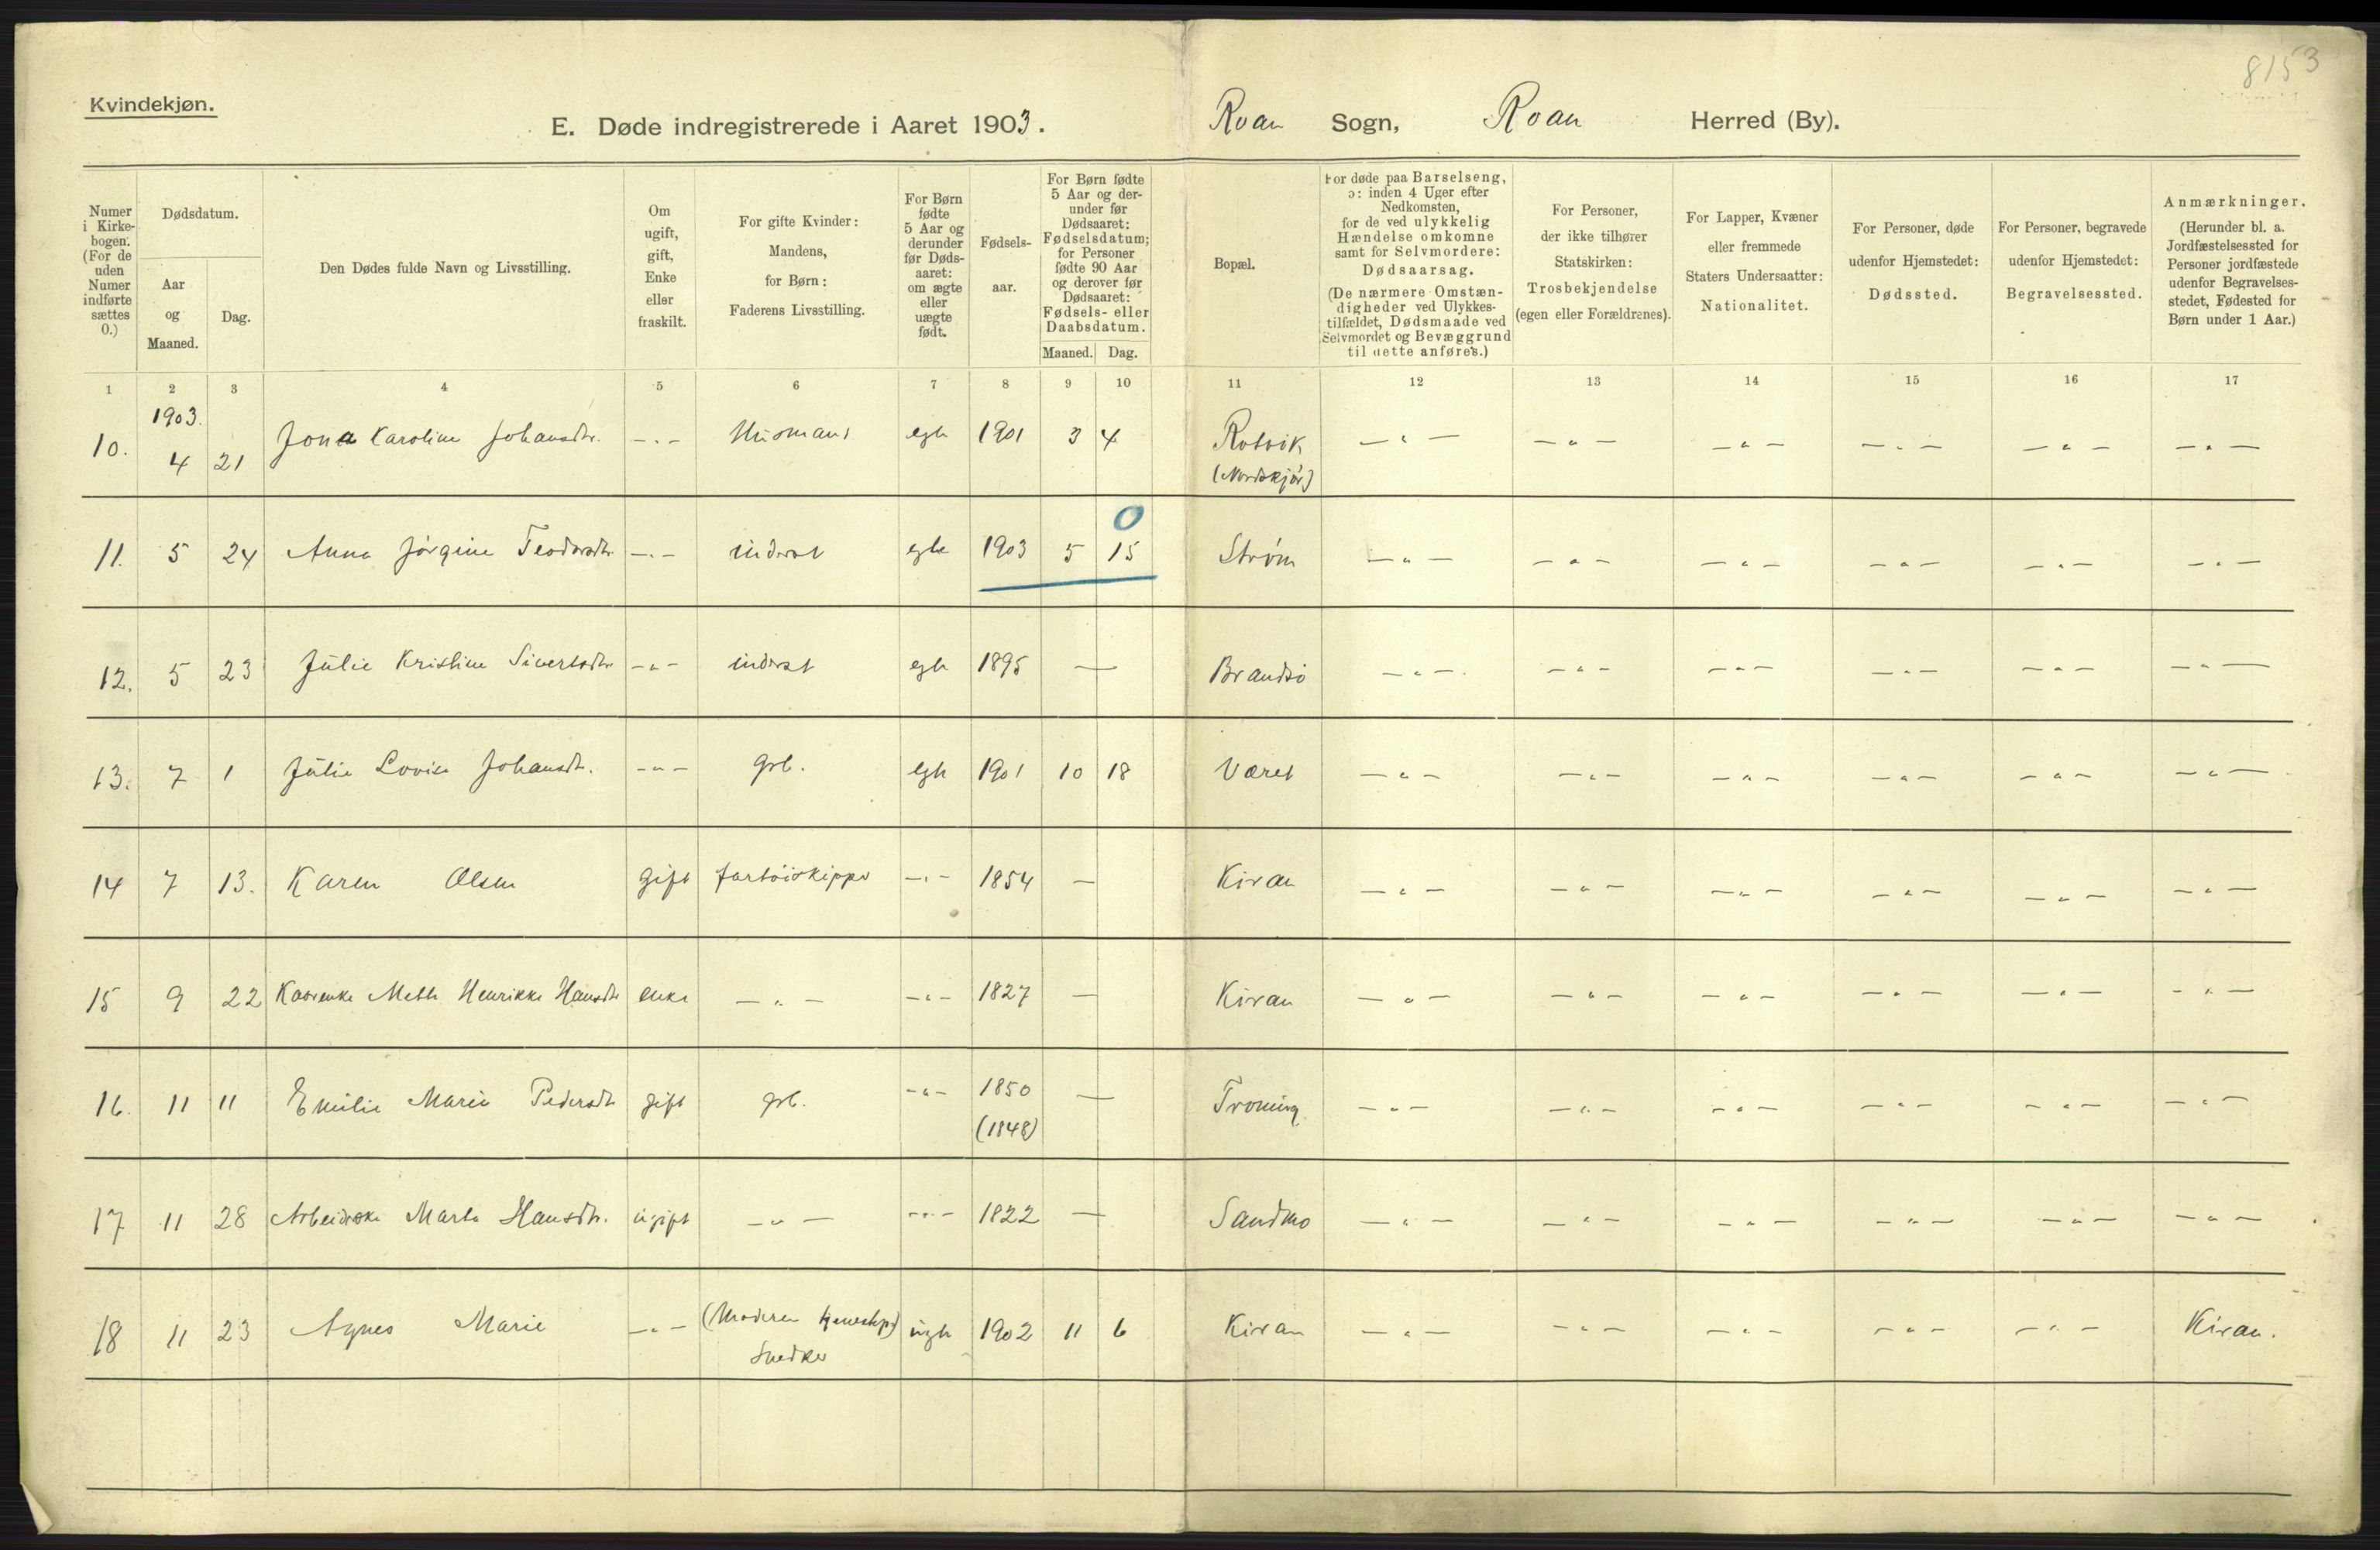 8153
Kvindekjøn.
E. Døde indregistrerede i Aaret 1903.
Roan Sogn, Roan Herred (By).
Numer i Kirkebogen. (For de uden Numer indførte sættes 0.)
Dødsdatum.
Aar og Maaned.
Dag.
Den Dødes fulde Navn og Livsstilling.
Om ugift, gift, Enke eller fraskilt.
For gifte Kvinder: Mandens, for Børn: Faderens Livsstilling.
For Børn fødte 5 Aar og derunder før Dødsaaret: om ægte eller uægte født.
Fødselsaar.
For Børn fødte 5 Aar og derunder før Dødsaaret: Fødselsdatum; for Personer fødte 90 Aar og derover før Dødsaaret: Fødsels- eller Daabsdatum.
Maaned. Dag.
Bopæl.
For døde paa Barselseng, ɔ: inden 4 Uger efter Nedkomsten, for de ved ulykkelig Hændelse omkomne samt for Selvmordere: Dødsaarsag. (De nærmere Omstændigheder ved Ulykkestilfældet, Dødsmaade ved Selvmordet og Bevæggrund til dette anføres.)
For Personer, der ikke tilhører Statskirken: Trosbekjendelse (egen eller Forældrenes).
For Lapper, Kvæner eller fremmede Staters Undersaatter: Nationalitet.
For Personer, døde udenfor Hjemstedet: Dødssted.
For Personer, begravede udenfor Hjemstedet: Begravelsessted.
Anmærkninger. (Herunder bl. a. Jordfæstelsessted for Personer jordfæstede udenfor Begravelsesstedet, Fødested for Børn under 1 Aar.)
1 2 3 4 5 6 7 8 9 10 11 12 13 14 15 16 17
1903.
10. 4 21 Jona Karoline Johansdtr. -"- Husmand egte 1901 3 4 Rotvik -"- -"- -"- -"- -"- -"-
(Nordskjør)
0
11. 5 24 Anna Jørgine Teodorsdtr -"- inderst egte 1903 5 15 Strøm -"- -"- -"- -"- -"- -"-
12. 5 23 Julie Kristine Sivertsdtr -"- inderst egte 1895 — Brandsø -"- -"- -"- -"- -"- -"-
13. 7 1 Julie Lovise Johansdtr. -"- grb. egte 1901 10 18 Været -"- -"- -"- -"- -"- -"-
14 7 13. Karen Olsen gift fartøiskipper -"- 1854 — Kiran -"- -"- -"- -"- -"- -"-
15 9 22 Mette Henrikke Hansdtr enke -"- -"- 1827 — Kiran -"- -"- -"- -"- -"- -"-
16. 11 11 Emilie Marie Pedersdtr gift grb. -"- 1850 — -"- -"- -"- -"- -"- -"-
(1848)
17 11 28 Arbeiderske Marta Hansdtr. ugift -"- -"- 1822 — Sandmo -"- -"- -"- -"- -"- -"-
18 11 23 Agnes Marie -"- (Moderen tjenestepi) uegte 1902 11 6 Kiran -"- -"- -"- -"- -"- Kiran.
Snedker